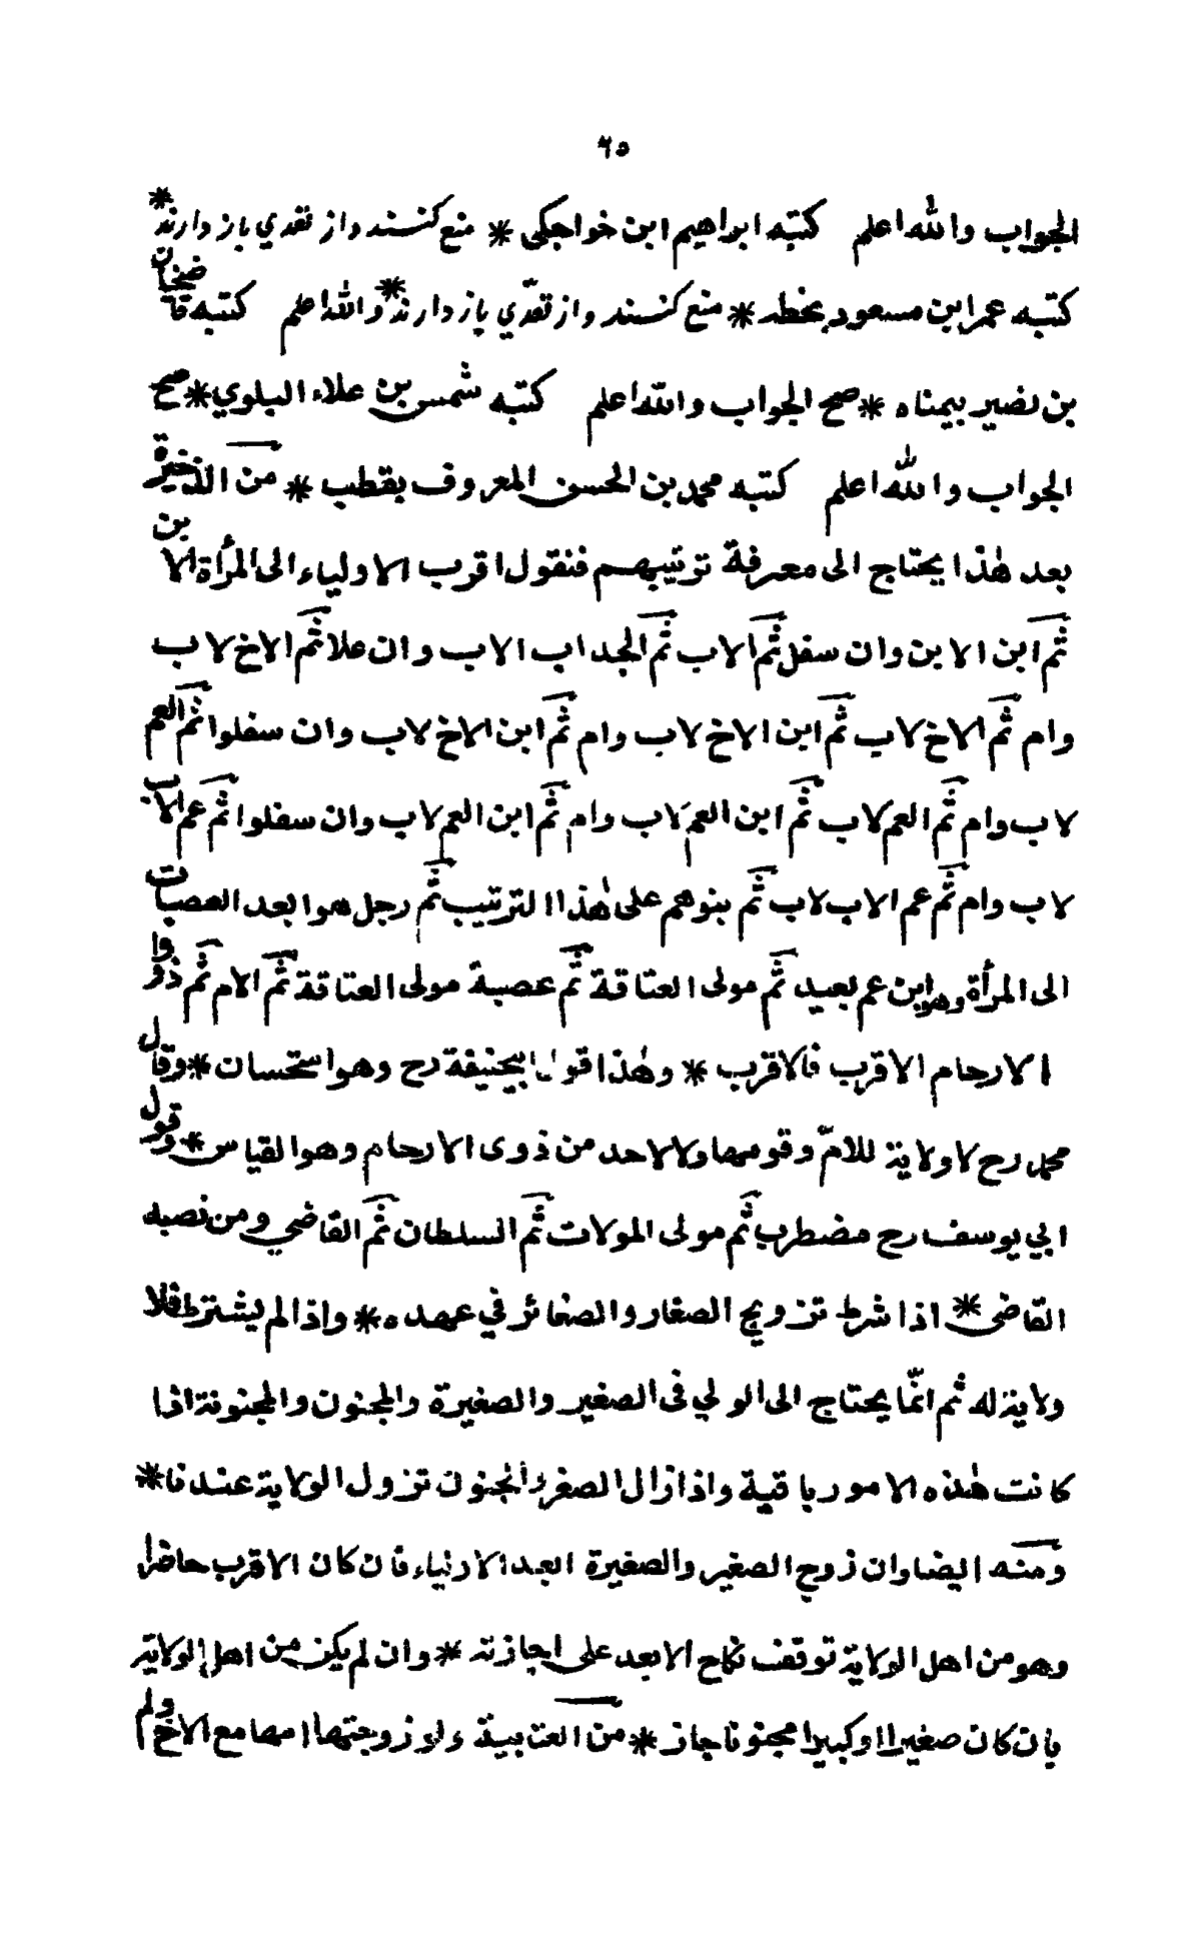 ٦٥
الجواب والله اعلم كتبه ابراهيم ابن خواجكى * منع كنند واز تعدي باز دارند *
كتبه عمر ابن مسعود بخطه * منع كنند واز تعدّي باز دارند * والله اعلم كتبه قاضيخان
بن نصير بيمناه * صح الجواب والله اعلم كتبه شمس بن علاء البلوي * صح
الجواب والله اعلم كتبه محمد بن الحسن المعروف بقطب * من الذخيرة
بعد هٰذا يحتاج الى معرفة ترتيبهم فنقول اقرب الاولياء الى المرأة الابن
ثم ابن الابن وان سفل ثم الاب ثم الجد اب الاب وان علا ثم الاخ لاب
وام ثم الاخ لاب ثم ابن الاخ لاب وام ثم ابن الاخ لاب وان سفلوا ثم العم
لاب وام ثم العم لاب ثم ابن العم لاب وام ثم ابن العم لاب وان سفلوا ثم عم الاب
لاب وام ثم عم الاب لاب ثم بنوهم على هٰذا الترتيب ثم رجل هو ابعد العصبات
الى المرأة وهو ابن عم بعيد ثم مولى العتاقة ثم عصبة مولى العتاقة ثم الام ثم ذووا
الارحام الاقرب فالاقرب * وهٰذا قول ابيحنيفة رح وهو استحسان * وقال
محمد رح لا ولاية للامّ وقومها ولا لاحد من ذوى الارحام وهو القياس * وقول
ابي يوسف رح مضطرب ثم مولى المولات ثم السلطان ثم القاضي ومن نصبه
القاضى * اذا شرط تزويج الصغار والصغائر في عهده * واذا لم يشترط فلا
ولاية له ثم انّما يحتاج الى الولي فى الصغير والصغيرة والمجنون والمجنونة اذا
كانت هٰذه الامور باقية واذا زال الصغر والجنون تزول الولاية عندنا *
ومنه ايضا وان زوج الصغير والصغيرة ابعد الاولياء فان كان الاقرب حاضرا
وهو من اهل الولاية توقف نكاح الابعد على اجازته * وان لم يكن من اهل الولاية
بان كان صغيرا او كبيرا مجنونا جاز * من العتابية ولو زوجتها امها مع الاخ ولم